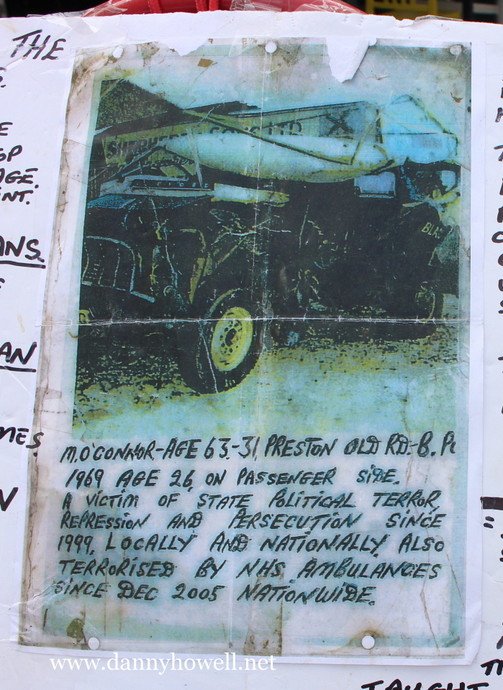 THE
AGE.
ANS.
AN
MES.
M. O'CONNOR-AGE 63.-31, PRESTON OLD RD.-B.
1969 AGE 26, ON PASSENGER SIDE.
A VICTIM OF STATE POLITICAL TERROR,
REPRESSION AND PERSECUTION SINCE
1999, LOCALLY AND NATIONALLY, ALSO
TERRORISED BY NHS, AMBULANCES
SINCE DEC 2005 NATIONWIDE.
www.dannyhowell.net
TAUGHT